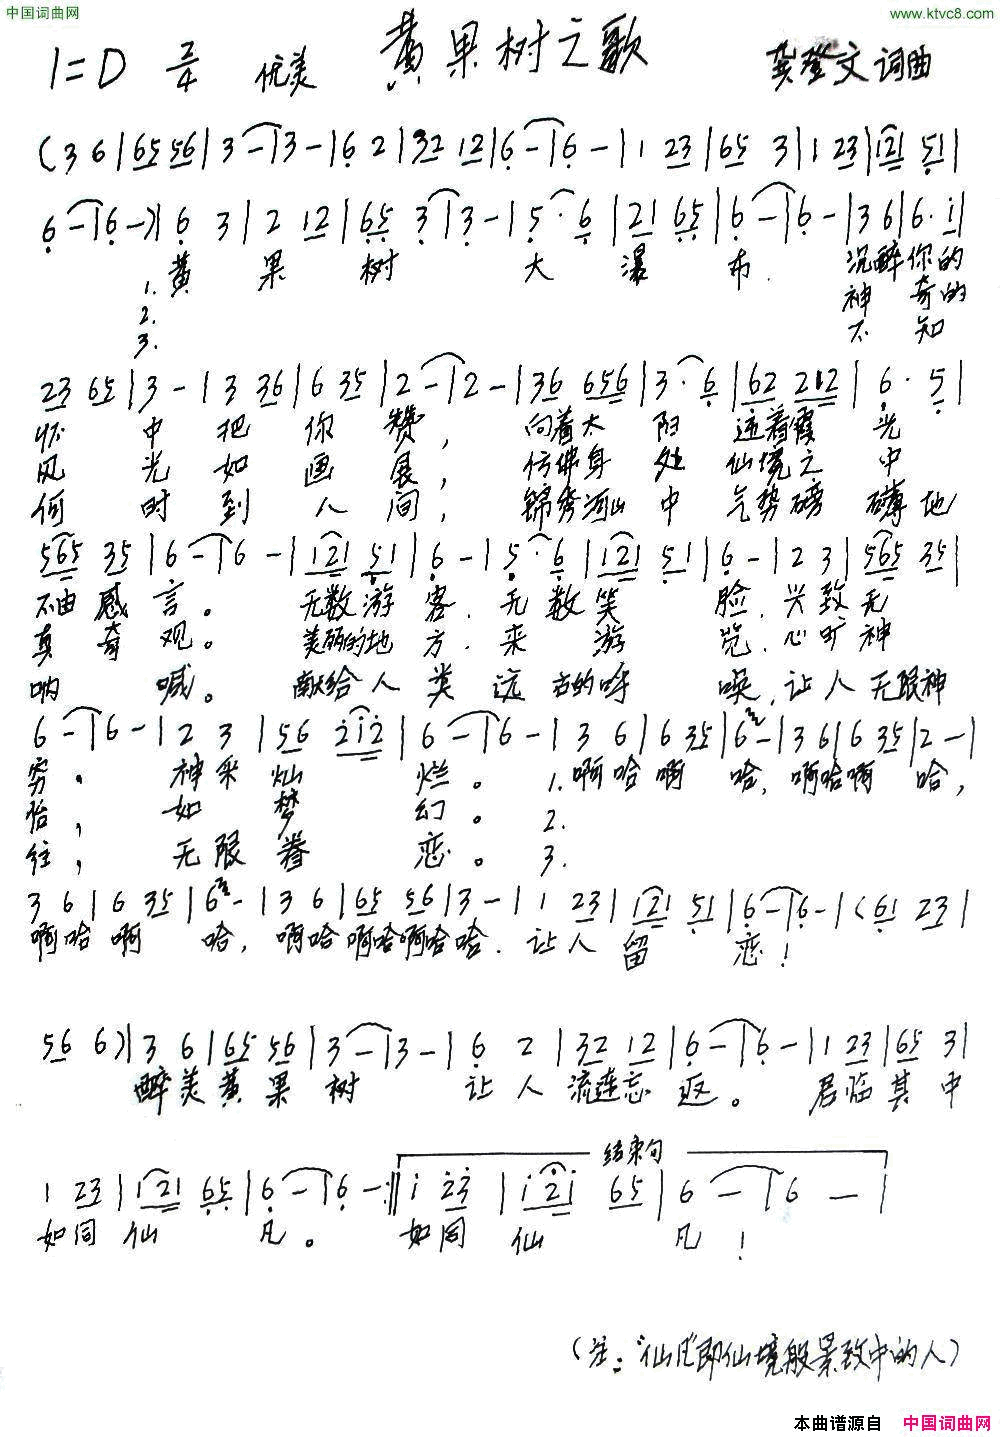 中国词曲网 www.ktvc8.com
1=D 2/4 优美 黄果树之歌 龚登文词曲
(3 6|65 56|3 -|3 -|6 2|32 12|6 -|6 -|1 23|65 3|1 23|121 51|
6 -|6 -)|6 3|2 12|65 3|3 -|5 · 6|21 65|6 -|6 -|3 6|6 · i|
1. 黄 果 树 大 瀑 布. 沉醉你的
2. 神 奇的
3. 不 知
23 65|3 -|3 36|6 35|2 -|2 -|36 656|3 · 6|62 212|6 · 5|
怀 中 把 你 赞, 向着太 阳 迎着霞 光
风 光 如 画 展, 仿佛身 处 仙境之 中
何 时 到 人 间, 锦秀河山 中 气势磅 礴地
565 35|6 -|6 -|121 51|6 -|5 · 6|121 51|6 -|2 3|565 35|
不由 感 言。 无数游 客. 无 数笑 脸. 兴致无
真 奇 观。 美丽的地 方. 来 游 览. 心旷神
呐 喊。 献给人 类 远 古的呼 唤. 让人无限神
6 -|6 -|2 3|56 2i2|6 -|6 -|3 6|6 35|6 -|3 6|6 35|2 -|
穷。 神采灿 烂。 1. 啊哈啊 哈, 啊哈啊 哈,
怡, 如 梦 幻。 2.
往, 无限眷 恋。 3.
3 6|6 35|6 -|3 6|65 56|3 -|1 23|121 51|6 -|6 -|(61 23|
啊哈啊 哈, 啊哈啊哈啊哈哈. 让人留 恋!
56 6)|3 6|65 56|3 -|3 -|6 2|32 12|6 -|6 -|1 23|65 3|
醉美黄果 树 让人流连忘 返。 君临其中
结束句
1 23|121 65|6 -|6 -:‖i 23|i2i 65|6 -|6 -|
如同仙 凡。 如同 仙 凡!
(注:“仙凡”即仙境般景致中的人)
本曲谱源自 中国词曲网